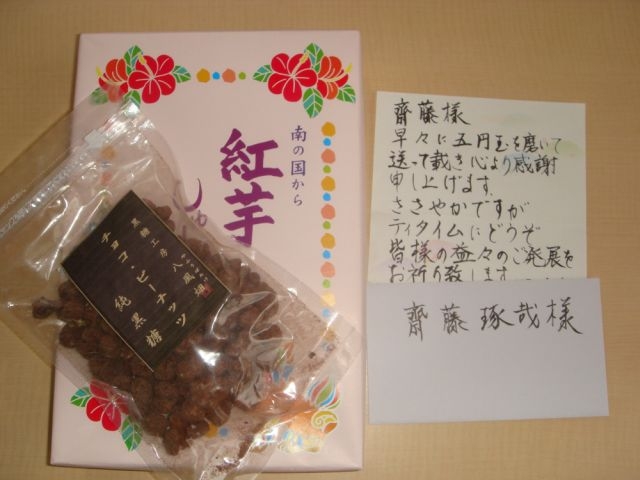 南の国から
紅芋
しゅ
黒糖工房
八風畑
チョコ・ピーナッツ
純黒糖
齋藤様
早々に五円玉を磨いて
送って戴き心より感謝
申し上げます.
ささやかですが
ティタイムにどうぞ
皆様の益々のご発展を
お祈り致します
齋藤琢哉様